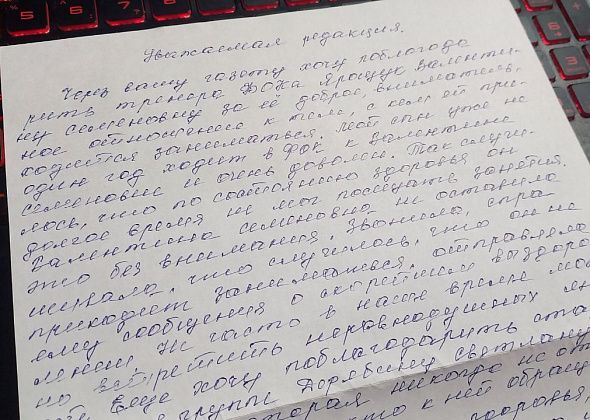 Уважаемая редакция.
Через вашу газету хочу поблагода
рить тренера ФОКа Ярощук Валенти-
ну Семеновну за её доброе, вниматель-
ное отношение к тем, с кем ей при-
ходится заниматься. Мой сын уже не
один год ходит в ФОК к Валентине
Семеновне и очень доволен. Так случи-
лось, что по состоянию здоровья он
долгое время не мог посещать занятия.
Валентина Семеновна не оставила
это без внимания, звонила, спра
шивала, что случилось, что он не
приходит заниматься, отправляла
ему сообщения о скорейшем выздоро
лении. Не часто в наше время мож
но встретить неравнодушных лю
Еще хочу поблагодарить ста
группы Дорябину Светлану
которая никогда не от
кто к ней обращ
здоровья